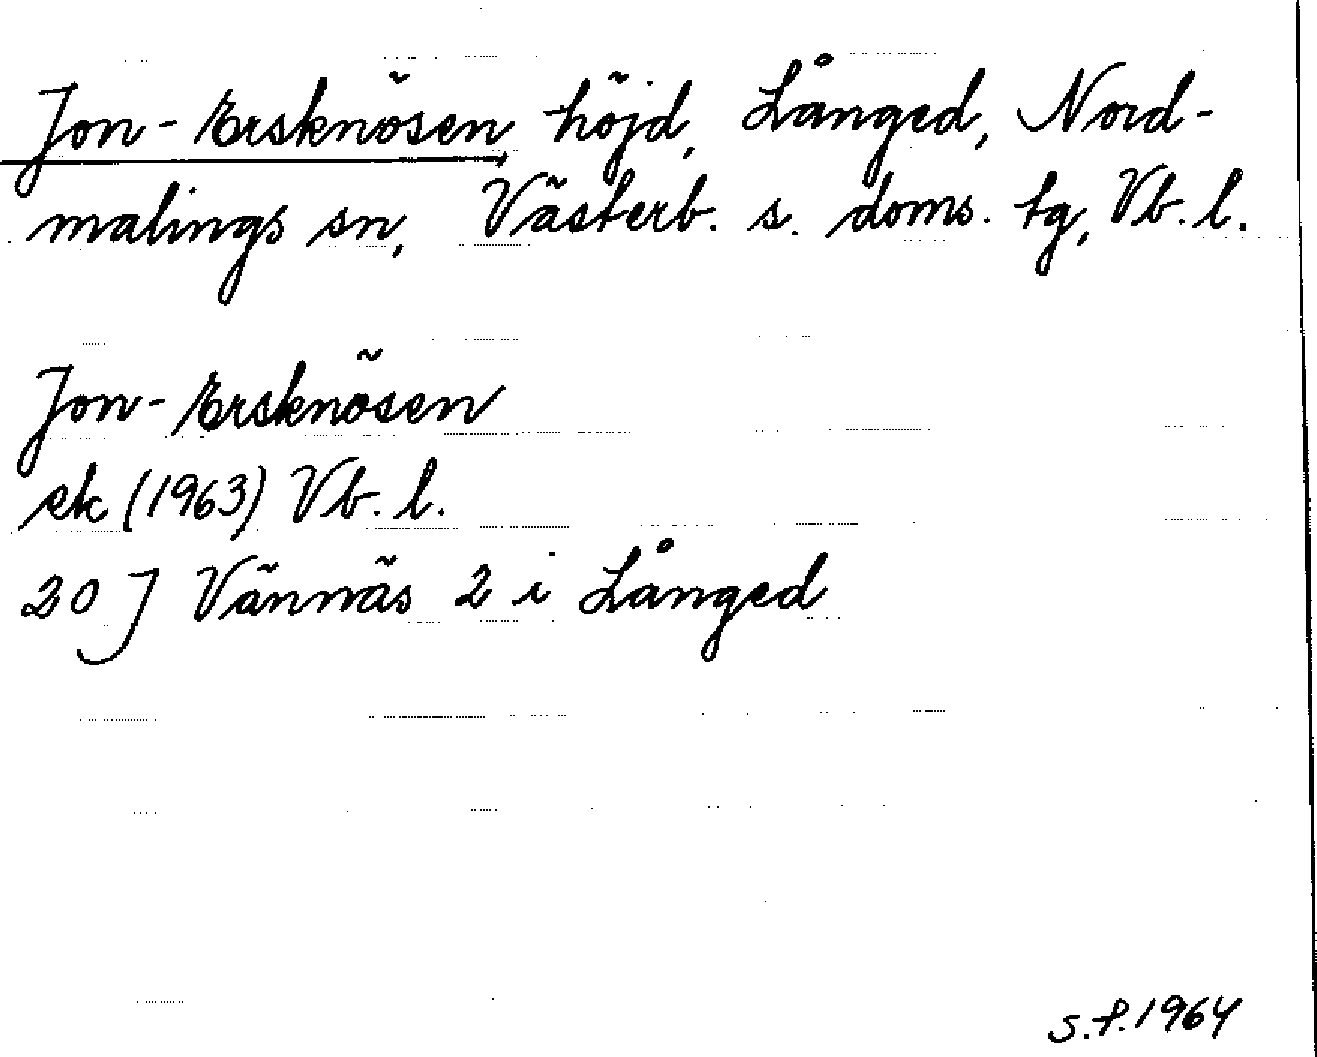 Jon-Ersknösen, höjd, Långed, Nord-
malings sn, Västerb. s. doms. tg, Vb. l.
Jon-Ersknösen
ek (1963) Vb. l.
20 J Vännäs 2 i Långed
S.f. 1964